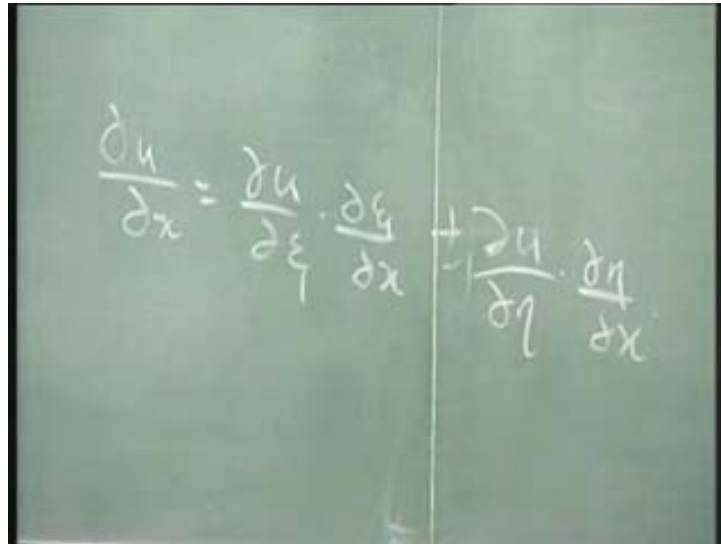 ∂u/∂x = ∂u/∂ξ · ∂ξ/∂x + ∂u/∂η · ∂η/∂x